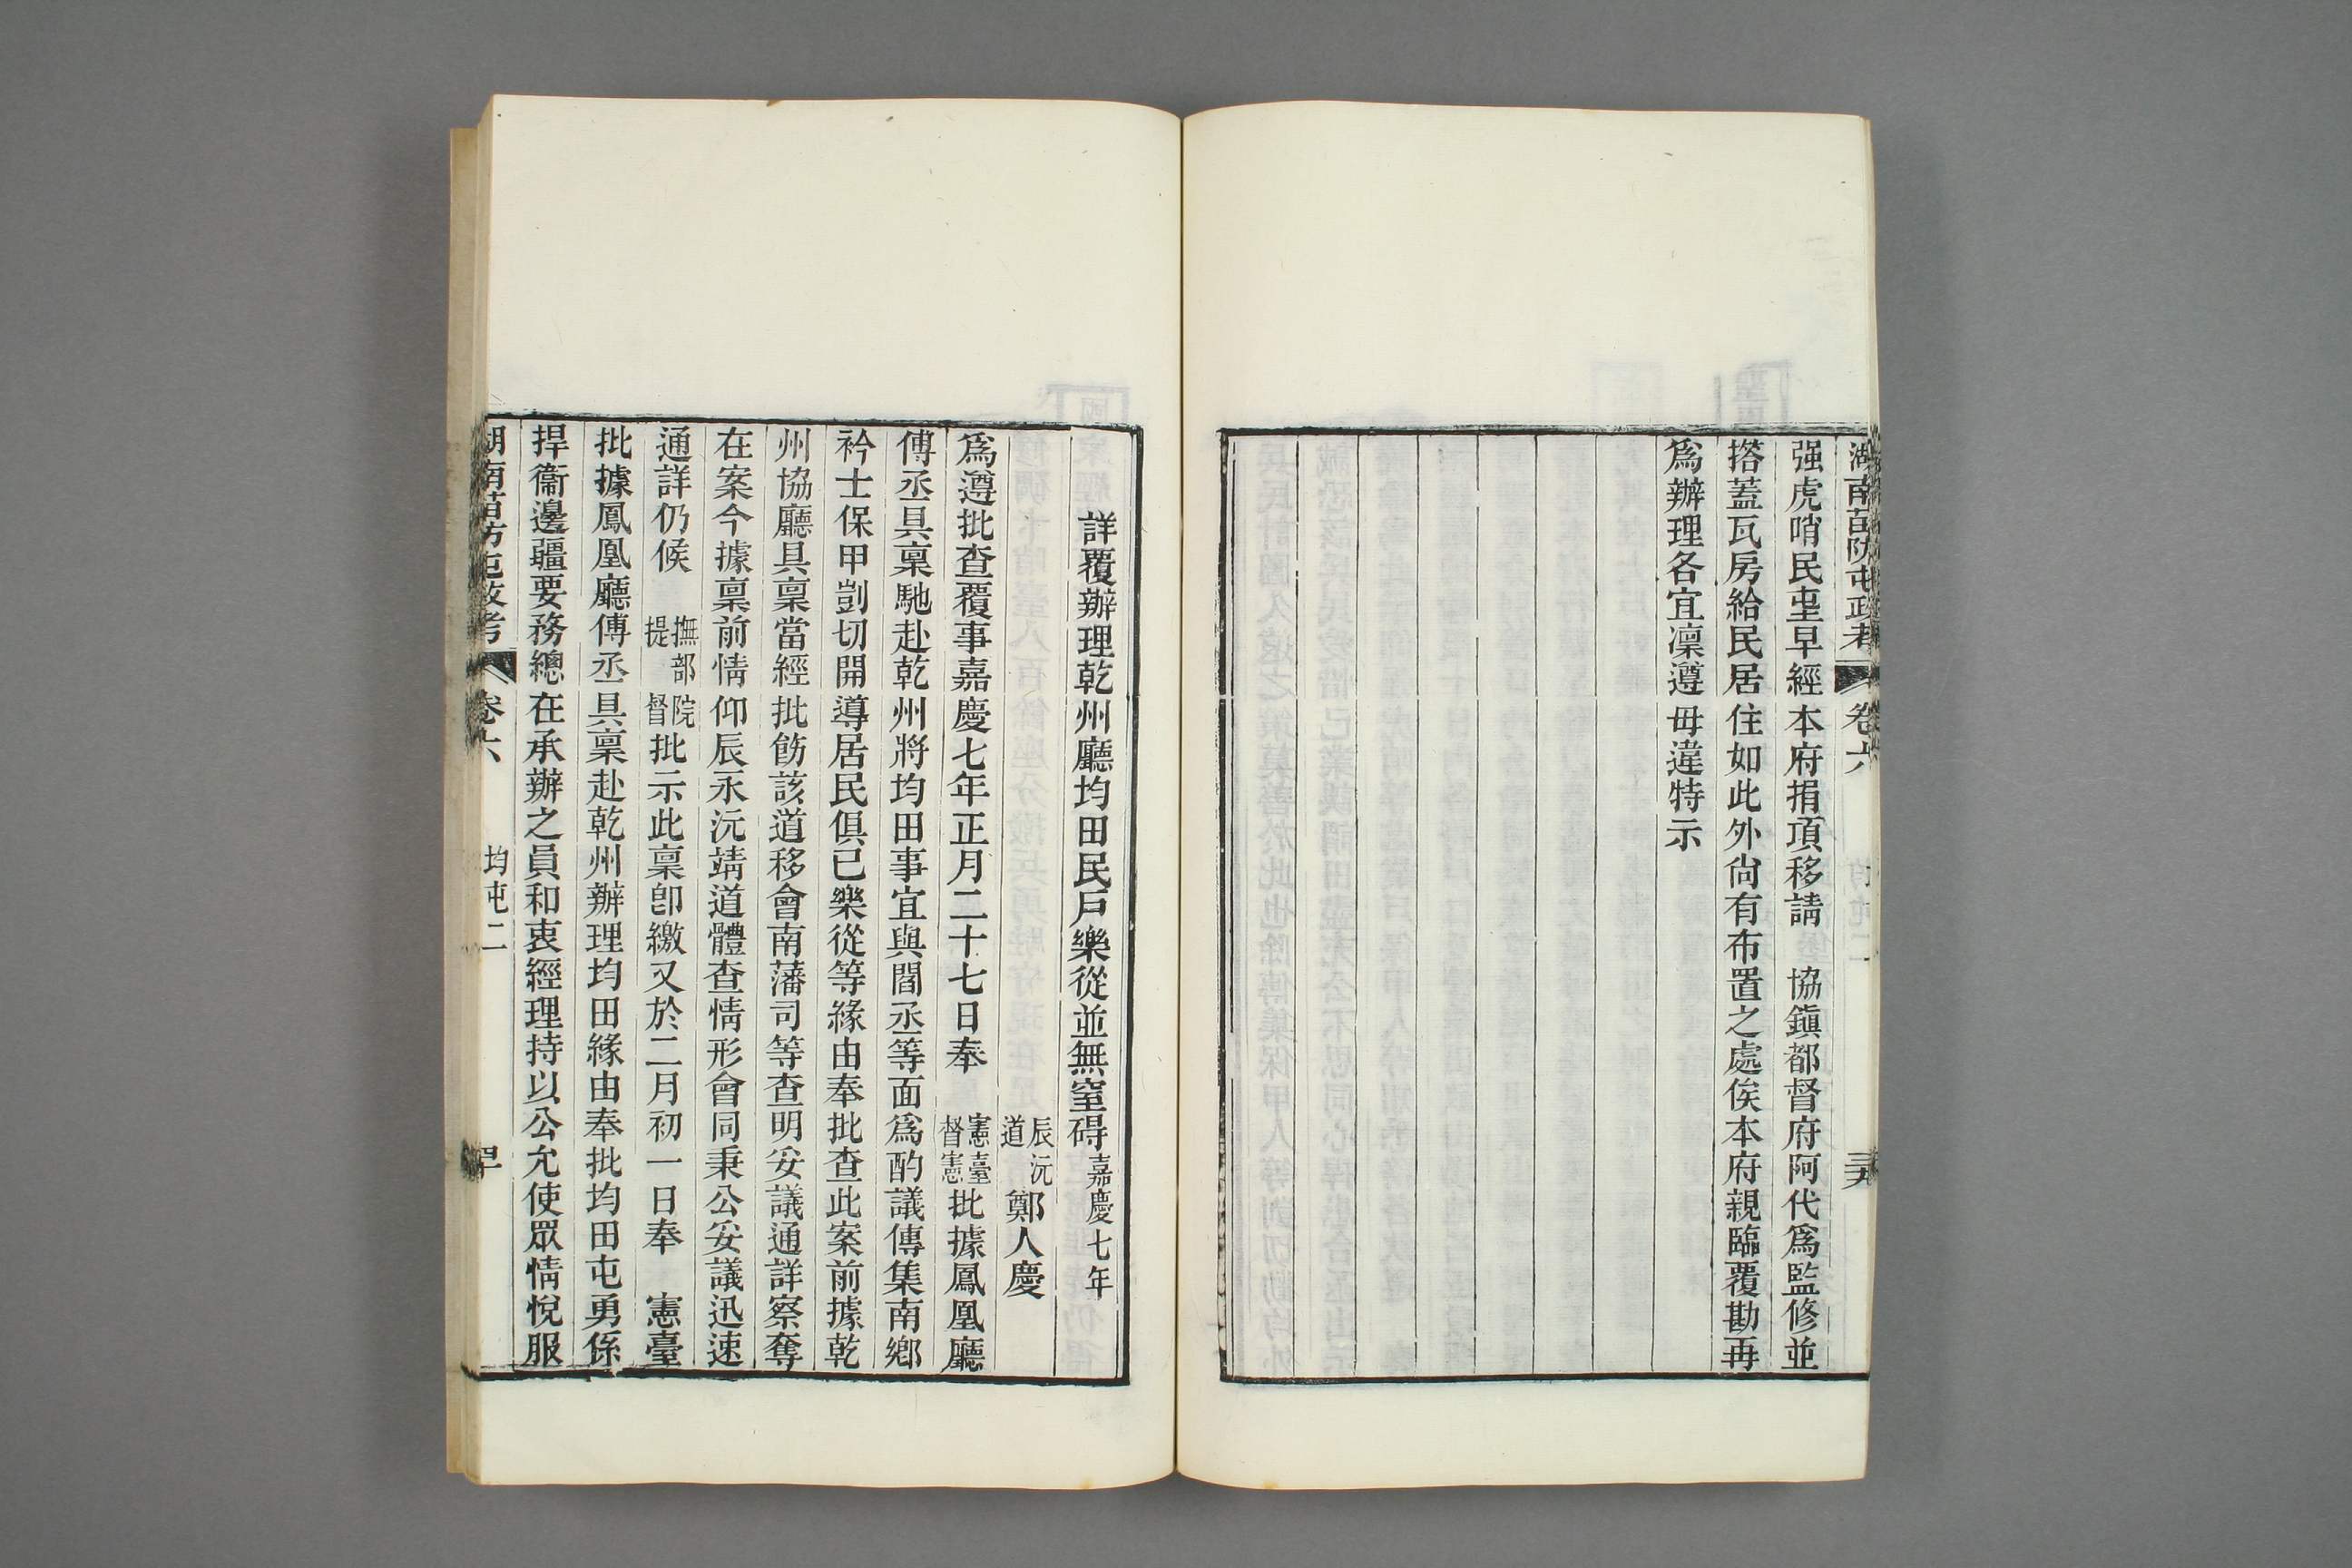 湖南苗防屯政考 卷六
强虎哨民屯早經本府捐項移請 協鎮都督府阿代爲監修並
搭蓋瓦房給民居住如此外尙有布置之處俟本府親臨覆勘再
爲辦理各宜凜遵毋違特示
詳覆辦理乾州廳均田民戶樂從並無窒碍嘉慶七年
辰沅道鄭人慶
爲遵批查覆事嘉慶七年正月二十七日奉 憲臺督憲批據鳳凰廳
傅丞具稟馳赴乾州將均田事宜與閻丞等面爲酌議傳集南鄉
衿士保甲剴切開導居民俱已樂從等緣由奉批查此案前據乾
州協廳具稟當經批飭該道移會南藩司等查明妥議通詳察奪
在案今據稟前情仰辰永沅靖道體查情形會同秉公妥議迅速
通詳仍候 撫部院提督批示此稟卽繳又於二月初一日奉 憲臺
批據鳳凰廳傅丞具稟赴乾州辦理均田緣由奉批均田屯勇係
捍衞邊疆要務總在承辦之員和衷經理持以公允使眾情悅服
湖南苗防屯政考 卷六 均屯二